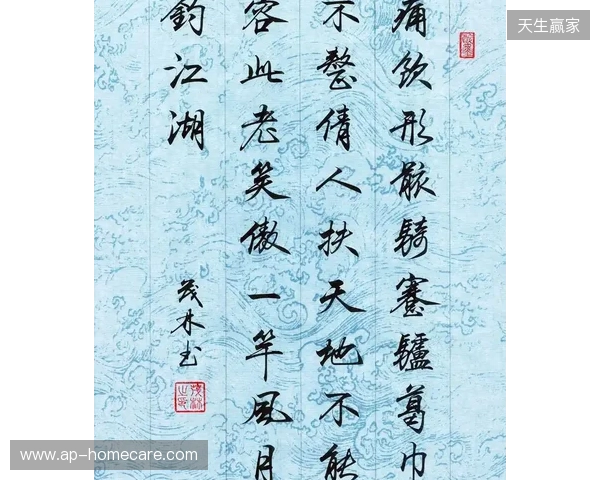 天生赢家
痛飲形骸騎蹇驢葛巾
不整倩人扶天地不能
容此老笑傲一竿風月
釣江湖
茂林书
www.ap-homecare.com